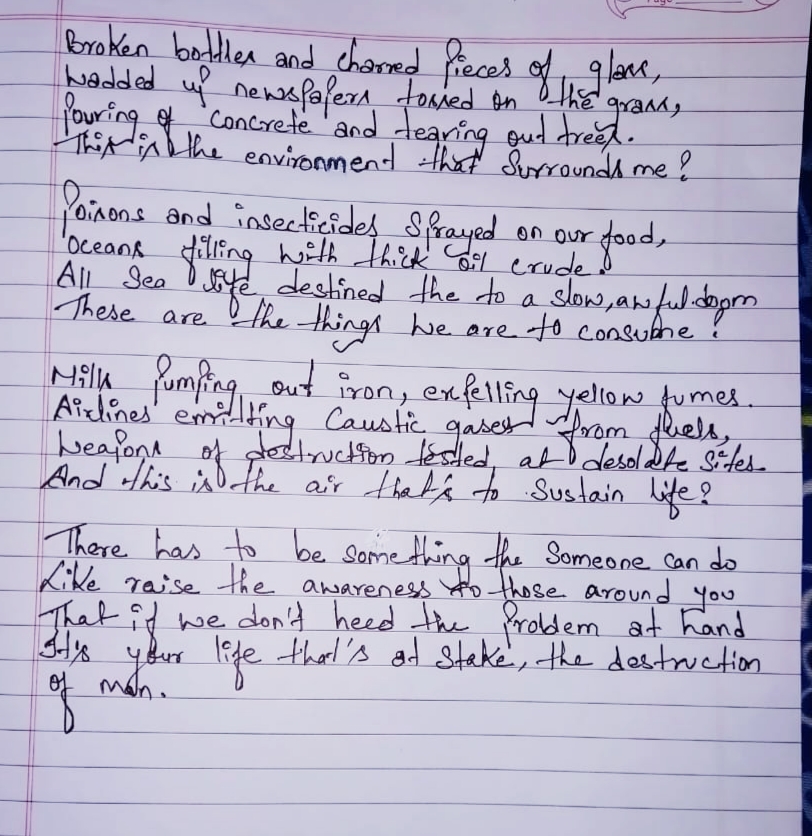 Broken bottles and charred pieces of glass,
wadded up newspapers tossed on the grass,
pouring of concrete and tearing out trees.
This is the environment that Surrounds me?
Poisons and insecticides Sprayed on our food,
Oceans filling with thick oil crude.
All Sea life destined the to a slow, awful doom
These are the things we are to consume!
Mills pumping out iron, expelling yellow fumes.
Airlines emitting Caustic gases from fuels,
Weapons of destruction tested at desolate Sites
And this is the air that's to Sustain life?
There has to be Something the Someone can do
Like raise the awareness to those around you
That if we don't heed the problem at hand
It's your life that's at Stake, the destruction
of man.